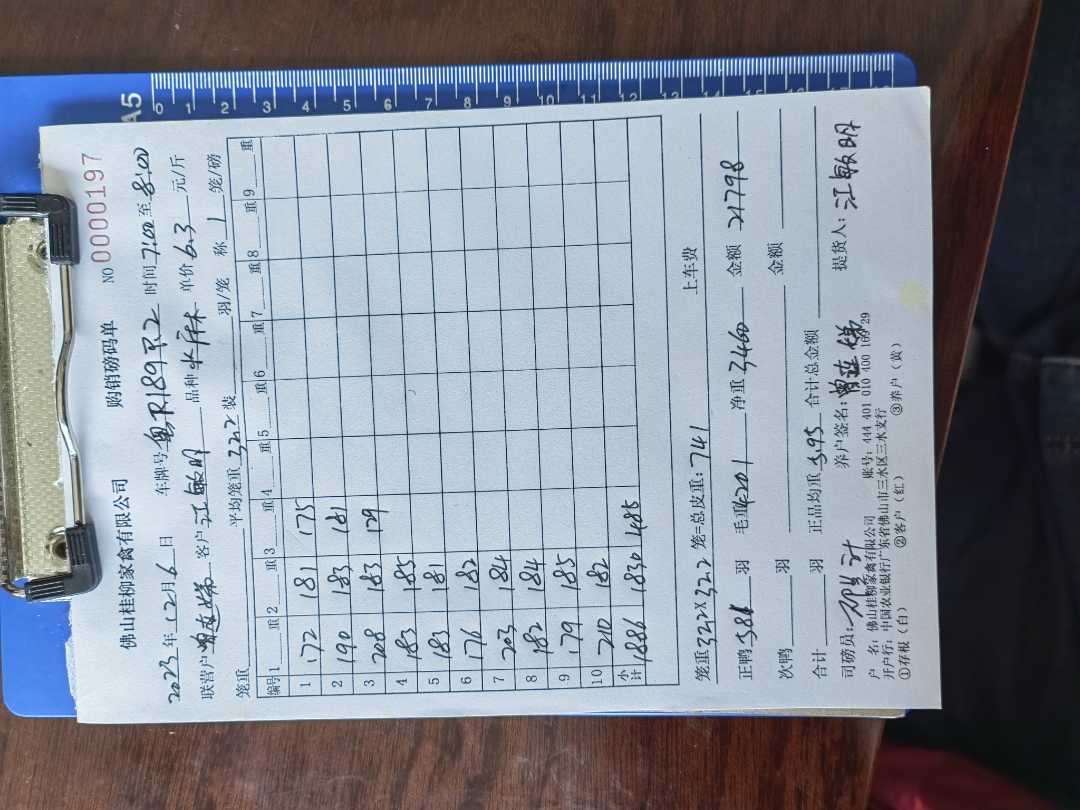 佛山桂柳家禽有限公司 购销磅码单 NO 0000197
2023年12月6日 车牌号粤R189R2 时间7:00至8:00
联营户 曾连娣 客户江敏明 品种 单价6.3元/斤
笼重 平均笼重 32.2 装 羽/笼 称 1 笼/磅
编号 1 重 2 重 3 重 4 重 5 重 6 重 7 重 8 重 9 重
1 172 181 175
2 190 183 181
3 208 183 129
4 183 185
5 183 181
6 176 182
7 203 184
8 182 184
9 179 185
10 210 182
小计 1886 1830 485
笼重32.2× 笼=总皮重:741 上车费
正鸭 羽 毛重4201 净重3460 金额 21798
次鸭 羽 金额
合计 羽 正品均重 3.95 合计总金额
司磅员: 养户签名:曾连娣 提货人:江敏明
户 名:佛山桂柳家禽有限公司 账号:444 401 010 400 169 29
开户行:中国农业银行广东省佛山市三水区三水支行
①存根(白) ②客户(红) ③养户(黄)
A5
0 1 2 3 4 5 6 7 8 9 10 11 12 13 14 15 16 17 18